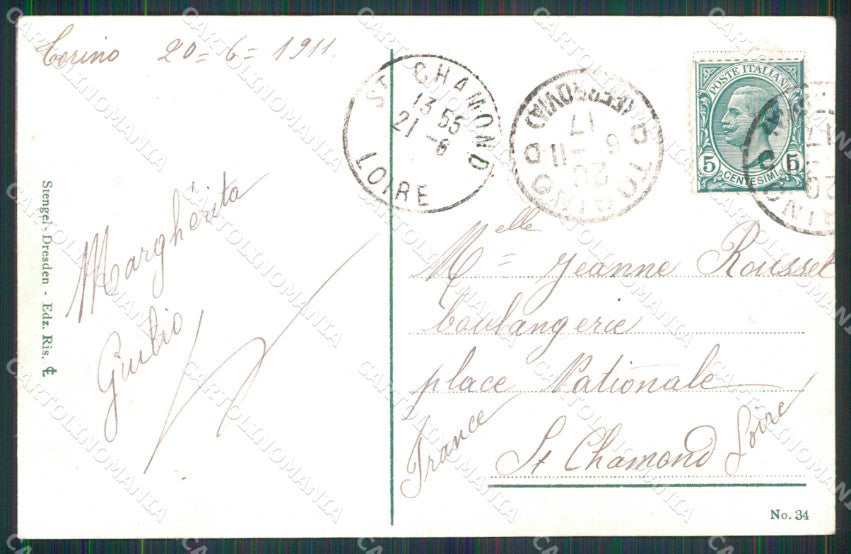 Torino 20=6=1911.
Margherita
Giulio
Stengel, Dresden - Edz. Ris.
ST CHAMOND
13 55
21 -6
LOIRE
TORINO
(FERROVIA)
17
20
6 - 11
POSTE ITALIANE
5 CENTESIMI 5
Melle Jeanne Rousset
boulangerie
place Nationale
St Chamond Loire
France
No. 34
CARTOLINOMANIA